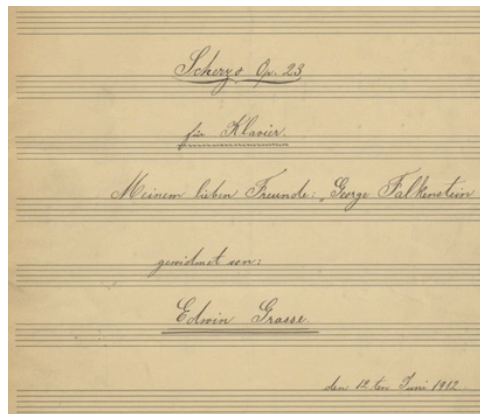 Scherzo Op. 23
für Klavier.
Meinem lieben Freunde: George Falkenstein
gewidmet von:
Edwin Grasse.
den 12ten Juni 1912